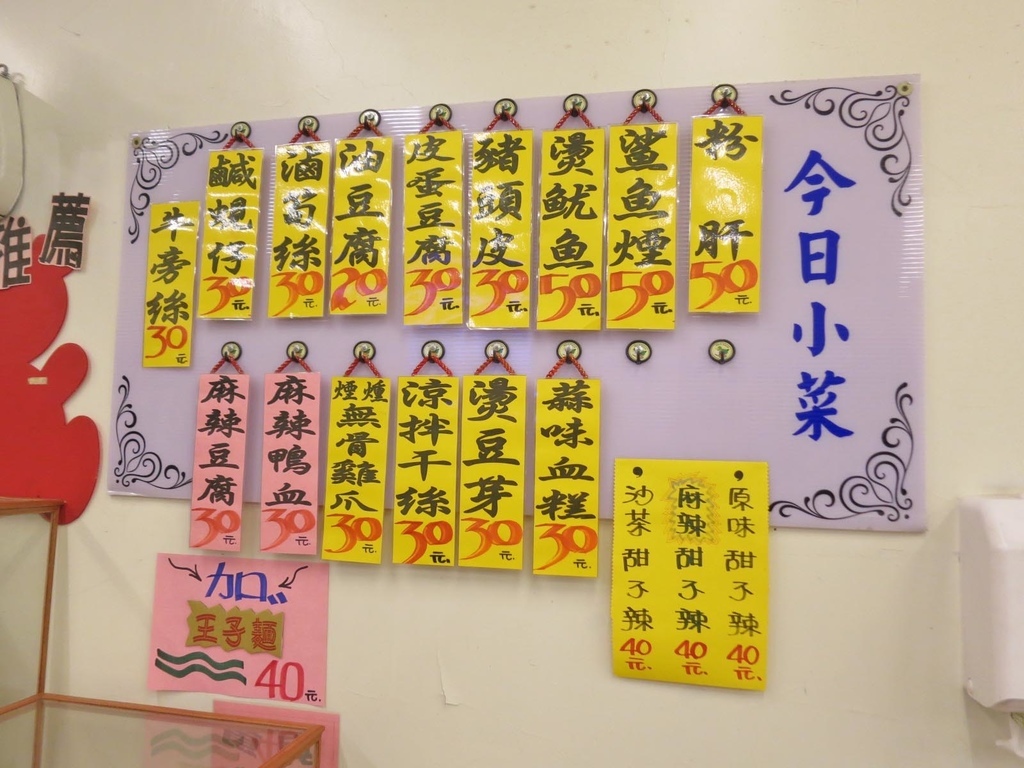 今日小菜
粉肝 50元.
鯊魚煙 50元.
燙魷魚 50元.
豬頭皮 30元.
皮蛋豆腐 30元.
油豆腐 20元.
滷筍絲 30元.
鹹蜆仔 30元.
牛旁絲 30元.
蒜味血糕 30元.
燙豆芽 30元.
涼拌干絲 30元.
煙燻無骨雞爪 30元.
麻辣鴨血 30元.
麻辣豆腐 30元.
原味甜不辣 40元.
麻辣甜不辣 40元.
沙茶甜不辣 40元.
加
王子麵
40元.
推薦